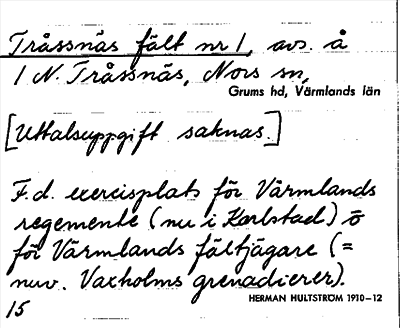 Tråssnäs fält nr 1, avs. å
1 N. Tråssnäs, Nors sn,
Grums hd, Värmlands län
[Uttalsuppgift saknas.]
F.d. exercisplats för Värmlands
regemente (nu i Karlstad) o
för Värmlands fältjägare (=
nuv. Vaxholms grenadierer).
HERMAN HULTSTRÖM 1910-12
15